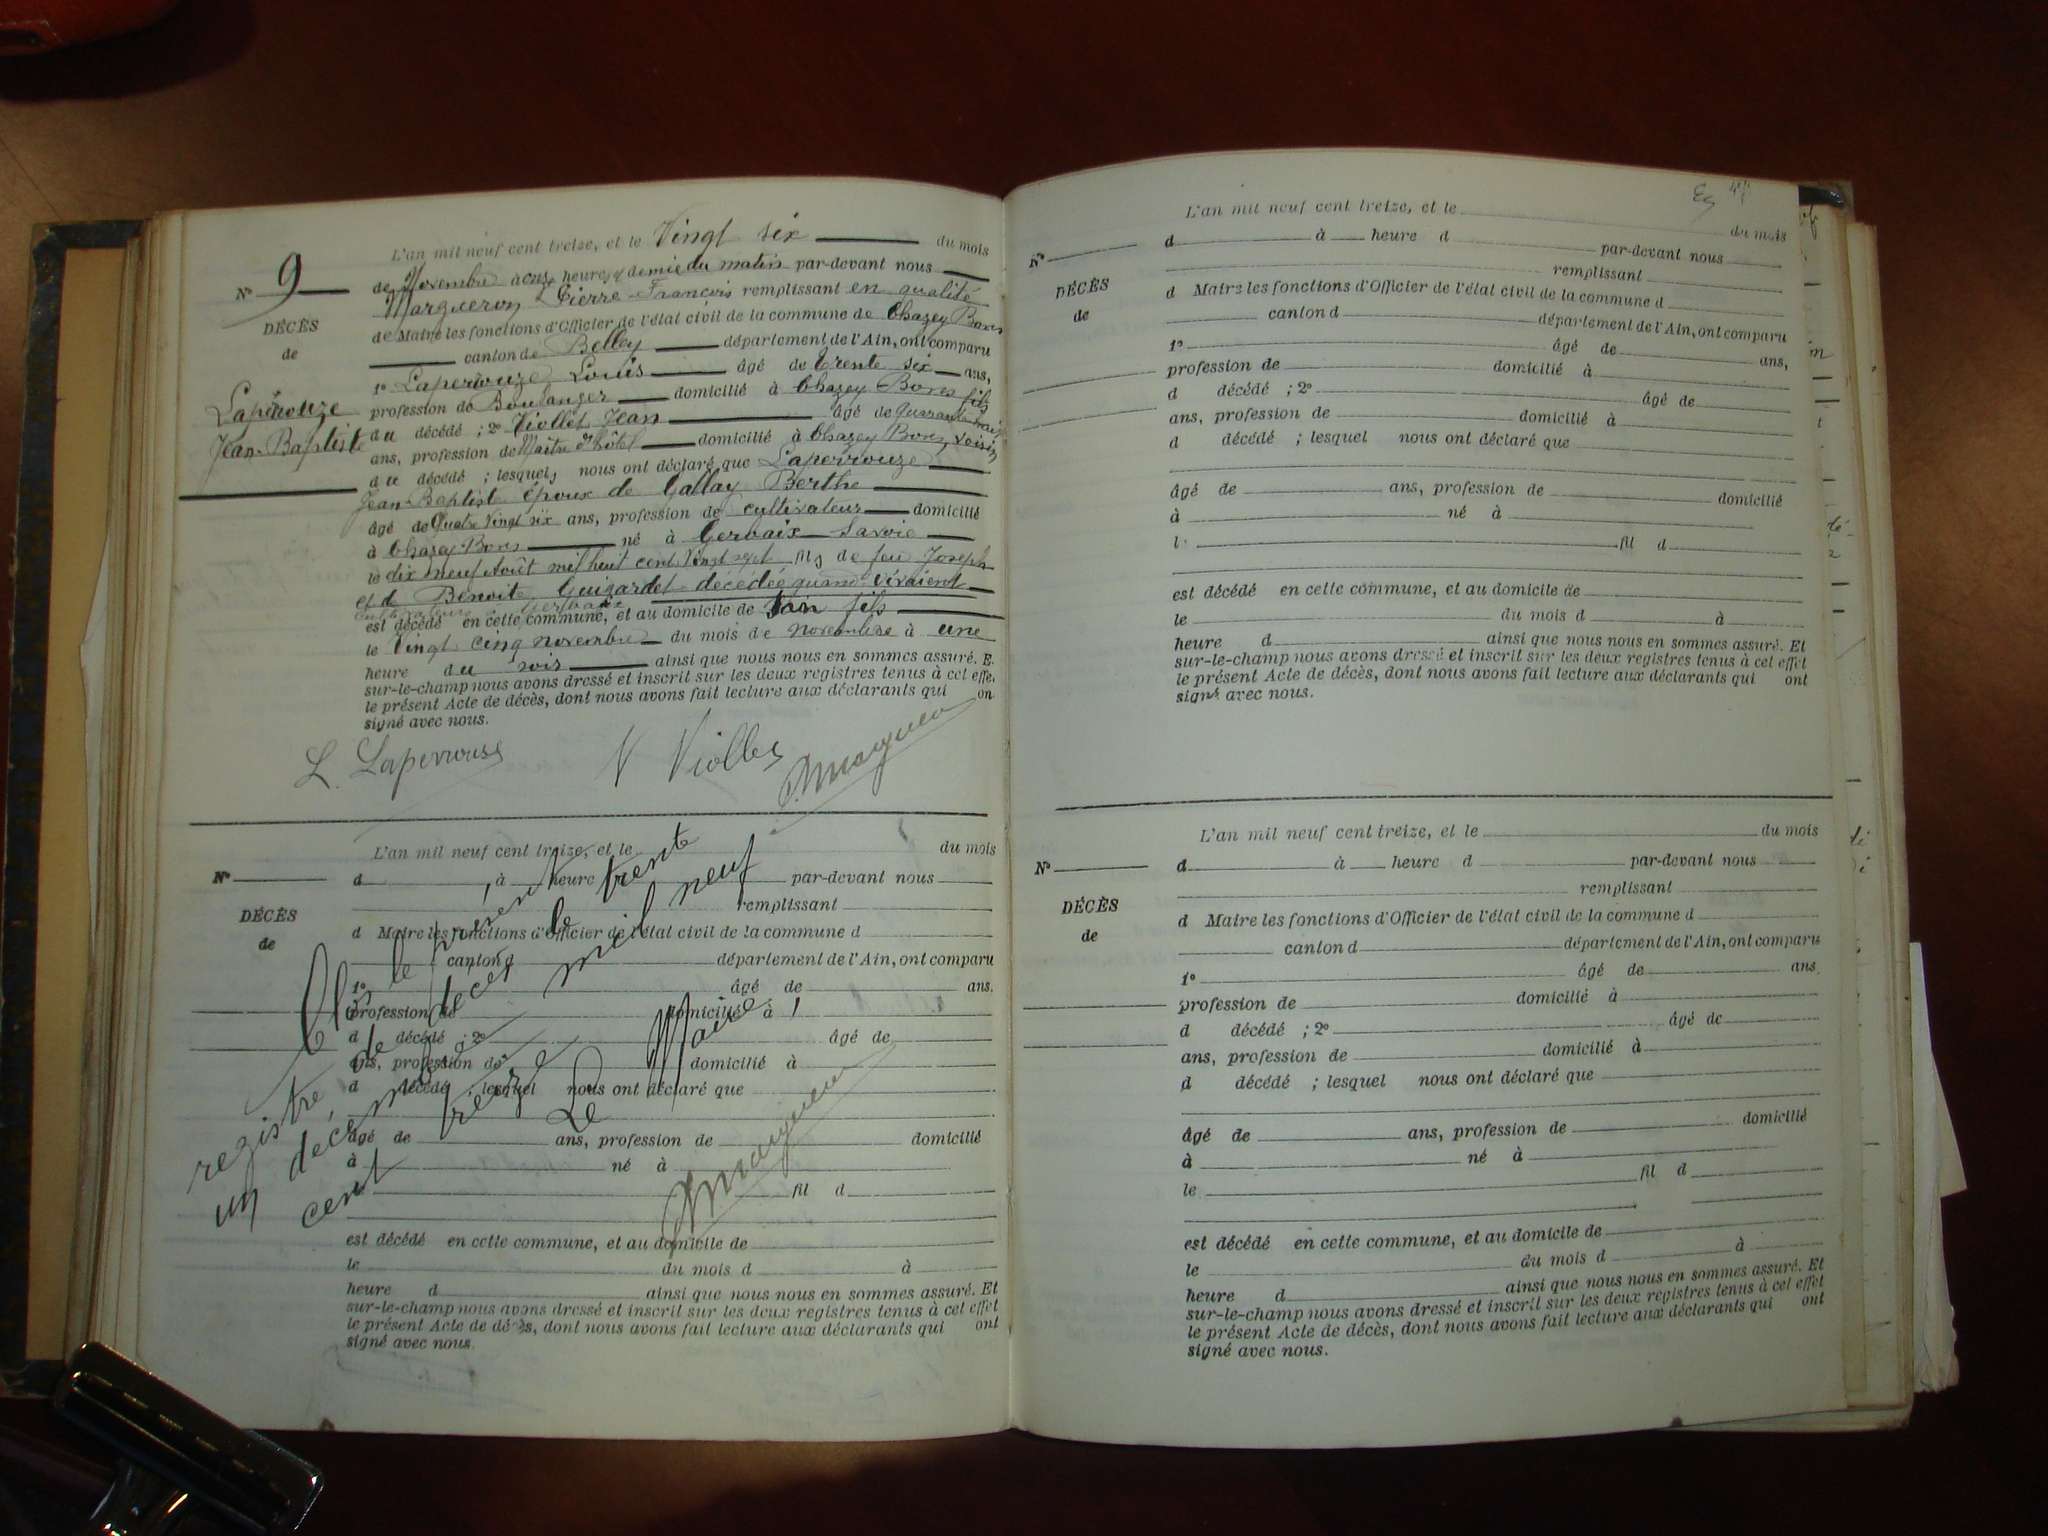 L'an mil neuf cent treize, et le Vingt six du mois
de Novembre à onze heures & demie du matin par-devant nous
Nº 9
Margueron Pierre-François remplissant en qualité
DÉCÈS
de Maire les fonctions d'Officier de l'état civil de la commune de Chazey Bons
de
canton de Belley département de l'Ain, ont comparu
1º Laperrouze Louis âgé de trente six ans,
Lapérouze
profession de Boulanger domicilié à Chazey Bons fils
Jean-Baptiste
du décédé ; 2º Viollet Jean âgé de quarante
ans, profession de Maître d'hôtel domicilié à Chazey Bons, voisin
du décédé ; lesquels nous ont déclaré que Laperrouze
Jean-Baptiste époux de Gallay Berthe
âgé de Quatre Vingt six ans, profession de cultivateur domicilié
à Chazey-Bons né à Gerbaix Savoie
le dix neuf Août mil huit cent vingt sept fils de feu Joseph
et de Benoite Guigardet décédée quand vivaient
est décédé en cette commune, et au domicile de son fils
le Vingt cinq novembre du mois de novembre à une
heure du soir ainsi que nous nous en sommes assuré. E
sur-le-champ nous avons dressé et inscrit sur les deux registres tenus à cet effe
le présent Acte de décès, dont nous avons fait lecture aux déclarants qui on
signé avec nous.
L. Laperrouse V Viollet Margueron
L'an mil neuf cent treize, et le du mois
Nº d à heure par-devant nous
remplissant
DÉCÈS
de
d Maire les fonctions d'Officier de l'état civil de la commune d
canton d département de l'Ain, ont comparu
1º âgé de ans.
profession de domicilié à
d décédé ; 2º âgé de
ans, profession de domicilié à
d décédé ; lesquel nous ont déclaré que
âgé de ans, profession de domicilié
à né à
fil d
est décédé en cette commune, et au domicile de
le du mois d à
heure d ainsi que nous nous en sommes assuré. Et
sur-le-champ nous avons dressé et inscrit sur les deux registres tenus à cet effet
le présent Acte de décès, dont nous avons fait lecture aux déclarants qui ont
signé avec nous.
Clos le présent
registre de décès le trente
un décembre mil neuf
cent treize
Le Maire
Margueron
L'an mil neuf cent treize, et le du mois
Nº d à heure d par-devant nous
remplissant
DÉCÈS
de
d Maire les fonctions d'Officier de l'état civil de la commune d
canton d département de l'Ain, ont comparu
1º âgé de ans,
profession de domicilié à
d décédé ; 2º âgé de
ans, profession de domicilié à
d décédé ; lesquel nous ont déclaré que
âgé de ans, profession de domicilié
à né à
l fil d
est décédé en cette commune, et au domicile de
le du mois d à
heure d ainsi que nous nous en sommes assuré. Et
sur-le-champ nous avons dressé et inscrit sur les deux registres tenus à cet effet
le présent Acte de décès, dont nous avons fait lecture aux déclarants qui ont
signé avec nous.
L'an mil neuf cent treize, et le du mois
Nº d à heure d par-devant nous
remplissant
DÉCÈS
de
d Maire les fonctions d'Officier de l'état civil de la commune d
canton d département de l'Ain, ont comparu
1º âgé de ans
profession de domicilié à
d décédé ; 2º âgé de
ans, profession de domicilié à
d décédé ; lesquel nous ont déclaré que
âgé de ans, profession de domicilié
à né à
le fil d
est décédé en cette commune, et au domicile de
le du mois d à
heure d ainsi que nous nous en sommes assuré. Et
sur-le-champ nous avons dressé et inscrit sur les deux registres tenus à cet effet
le présent Acte de décès, dont nous avons fait lecture aux déclarants qui ont
signé avec nous.